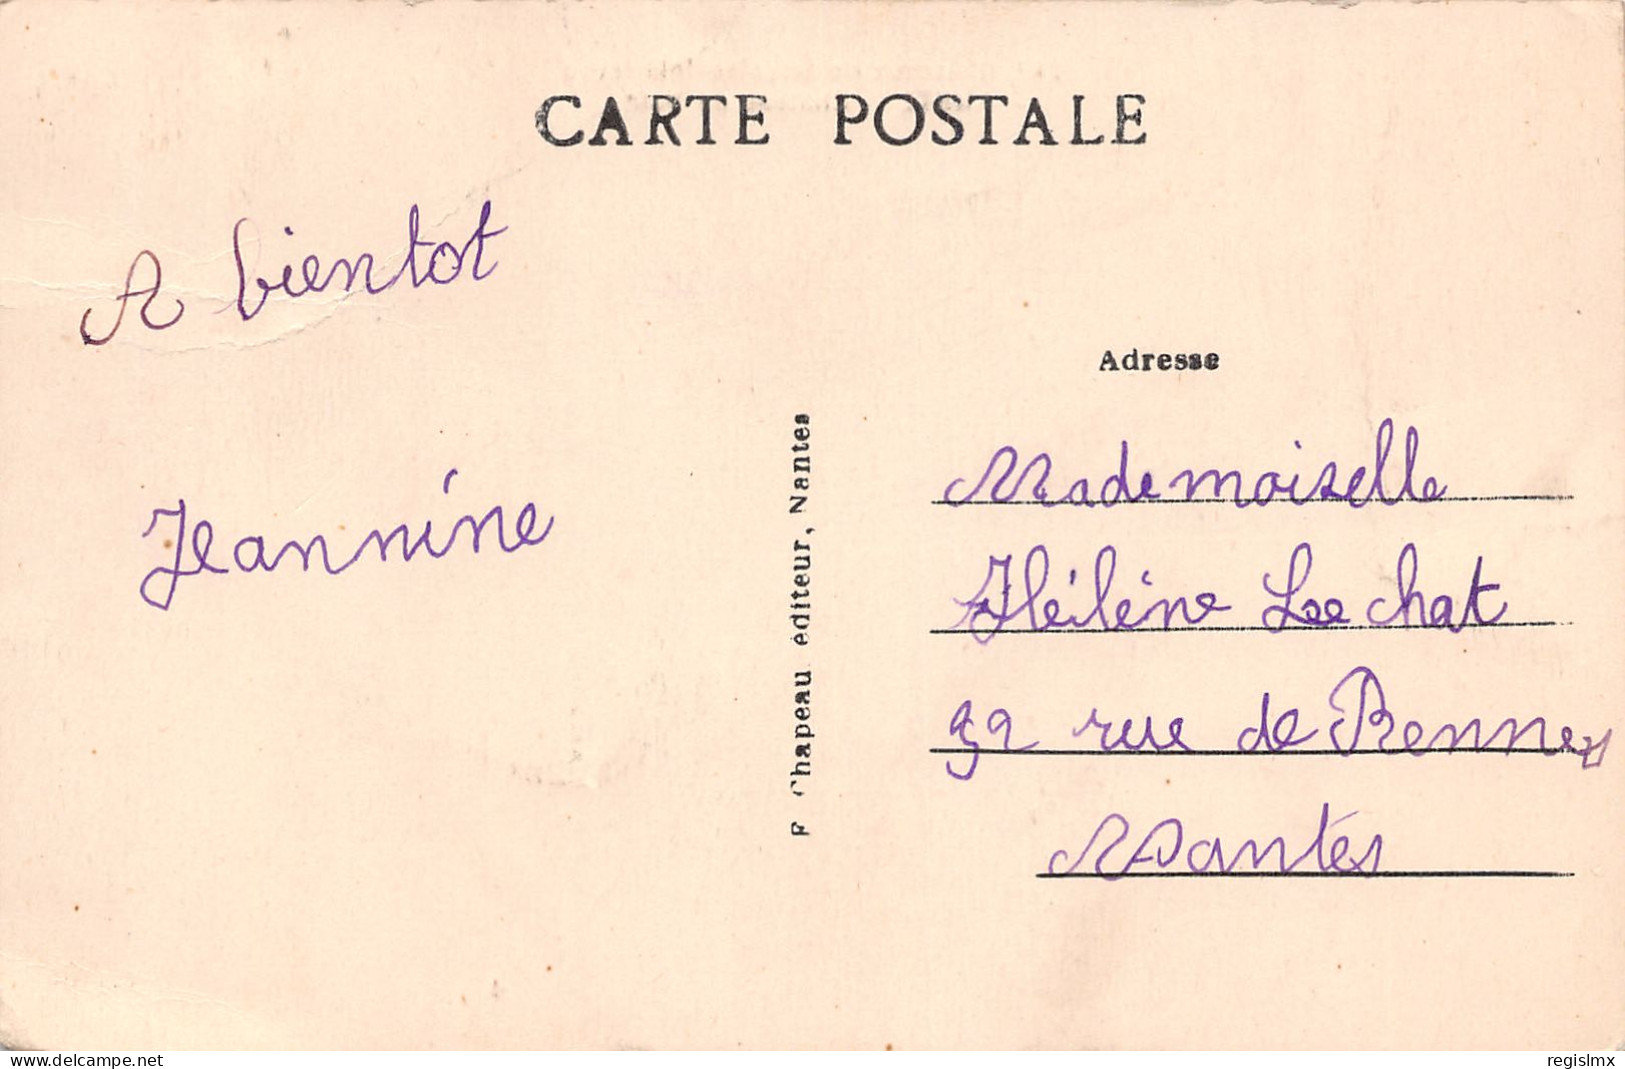 CARTE POSTALE
A bientot
Jeannine
F. Chapeau éditeur, Nantes
Adresse
Mademoiselle
Héléne Le chat
92 rue de Rennes
Nantes
www.delcampe.net
regislmx